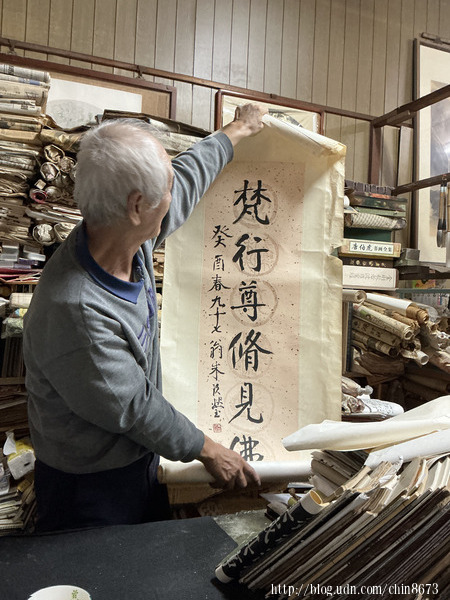 梵行尊脩見佛
癸酉春九十七翁朱玖瑩
唐伯虎
http://blog.udn.com/chin8673